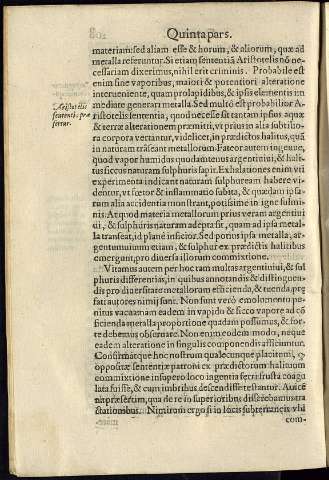 Quinta pars.
materiam: sed aliam esse & horum, & aliorum, quæ ad
metalla referuntur. Si etiam sententiā Aristotelis nō ne-
cessariam dixerimus, nihil erit criminis. Probabile est
enim sine vaporibus, maiori & potentiori alteratione
interueniente, quam pro lapidibus, & ipsis elementis im
mediate generari metalla. Sed multò est probabilior A-
ristotelis sententia, quod necesse sit tantam ipsius aquæ
& terræ alterationem præmitti, vt prius in alia subtilio-
ra corpora vertantur, videlicet, in prædictos halitus, quā
in naturam trāseant metallorum. Fateor autem ingenue,
quod vapor humidus quodamtenus argentiuiui, & hali-
tus siccus naturam sulphuris sapit. Exhalationes enim vti
experimenta indicant naturam sulphuream habere vi-
dentur, vt fœtor & inflammatio subita, & quædam ipsa-
rum alia accidentia monstrant, potissime in igne fulmi-
nis. At quod materia metallorum prius veram argentiui
ui, & sulphuris naturam adepta sit, quam ad ipsa metal-
la transeat, id plane inficior. Sed potius ipsa metalla, ar-
gentumuiuum etiam, & sulphur ex prædictis halitibus
emergunt, pro diuersa illorum commixtione.
Vitamus autem per hoc tam multas argentiuiui, & sul
phuris differencias, in quibus annotandis & distinguen-
dis pro diuersitate metallorum efficienda, & tuenda præ
fati autores nimij sunt. Non sunt verò emolumento pe-
nitus vacuæ nam eadem in vapido & sicco vapore ad cō
ficienda metalla proportione quadam possumus, & for-
te debemus obseruare. Non enim eodem modo, neque
eadem alteratione in singulis componendis afficiuntur.
Confirmātque hoc nostrum qualecunque placitum,
oppositæ sententiæ patroni ex prædictorum halituum
commixtione in supero loco ingentia ferri frusta coagu
lata fuisse, & cum imbribus descendisse testantur. Auicē
na præsertim, qua de re in superioribus disserebamus tra
ctationibus. Nimirum ergo si in locis subterraneis vbi
com-
Aristotelis
sententia præ
fertur.